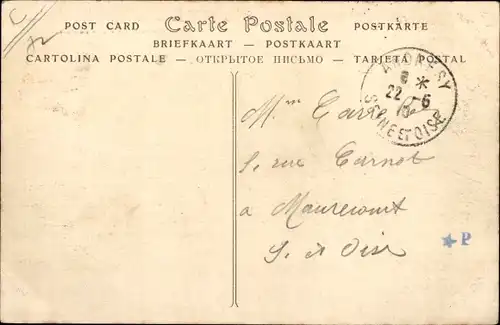 POST CARD Carte Postale POSTKARTE
BRIEFKAART — POSTKAART
CARTOLINA POSTALE — ОТКРЫТОЕ ПИСЬМО — TARJETA POSTAL
ANDRESY
22 - 6
SEINE ET OISE
5. rue Carnot
à Maurecourt
S. et Oise
★P